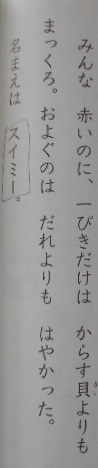 みんな 赤いのに、一ぴきだけは からす貝よりも
まっくろ。およぐのは だれよりも はやかった。
名まえは スイミー。